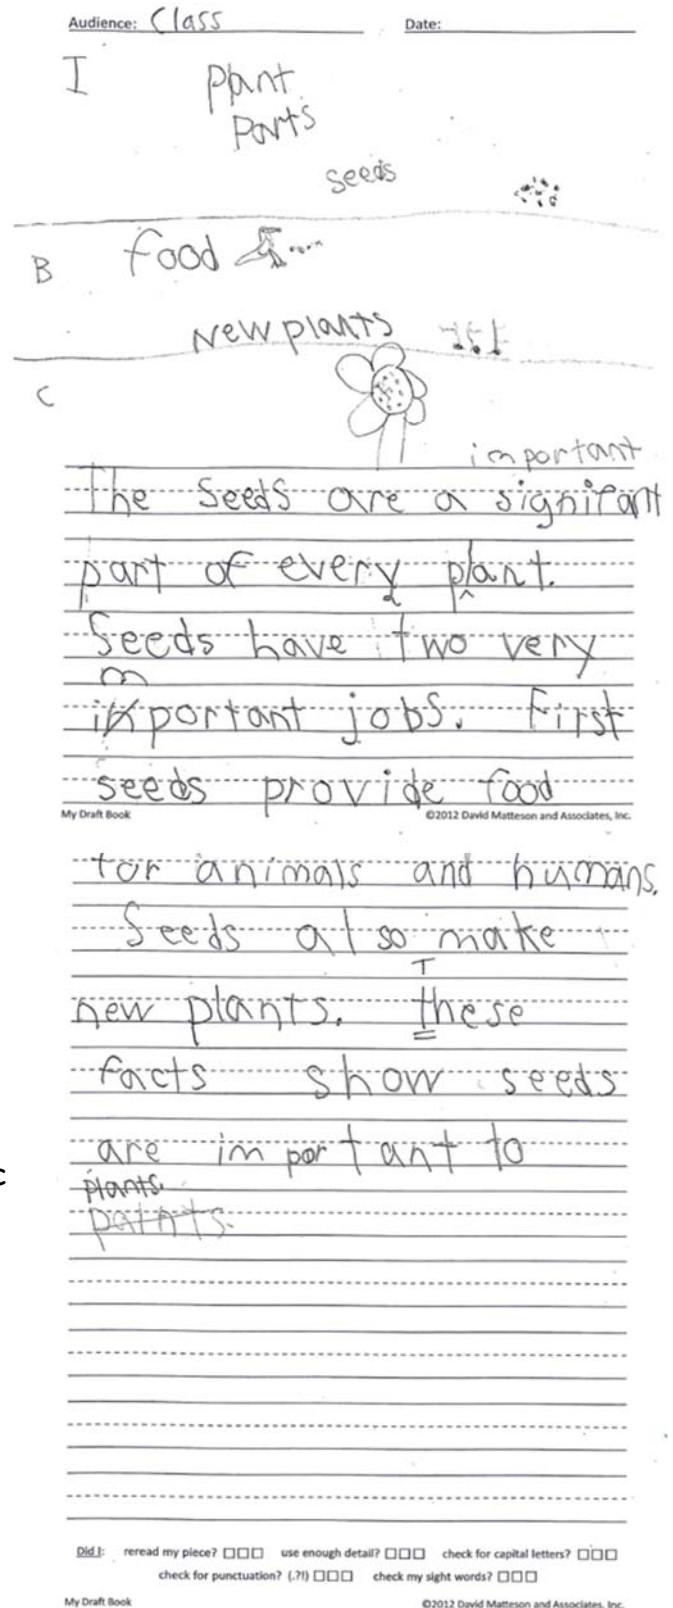 Audience: Class Date:
I
plant
parts
seeds
B
food
New plants
C
important
The seeds are a signifant
part of every plant.
Seeds have two very
m
important jobs. First
seeds provide food
My Draft Book ©2012 David Matteson and Associates, Inc.
for animals and humans.
Seeds also make
T
new plants. these
facts show seeds
are important to
c
plants.
patnts.
Did I: reread my piece? □□□ use enough detail? □□□ check for capital letters? □□□
check for punctuation? (.?!) □□□ check my sight words? □□□
My Draft Book ©2012 David Matteson and Associates, Inc.